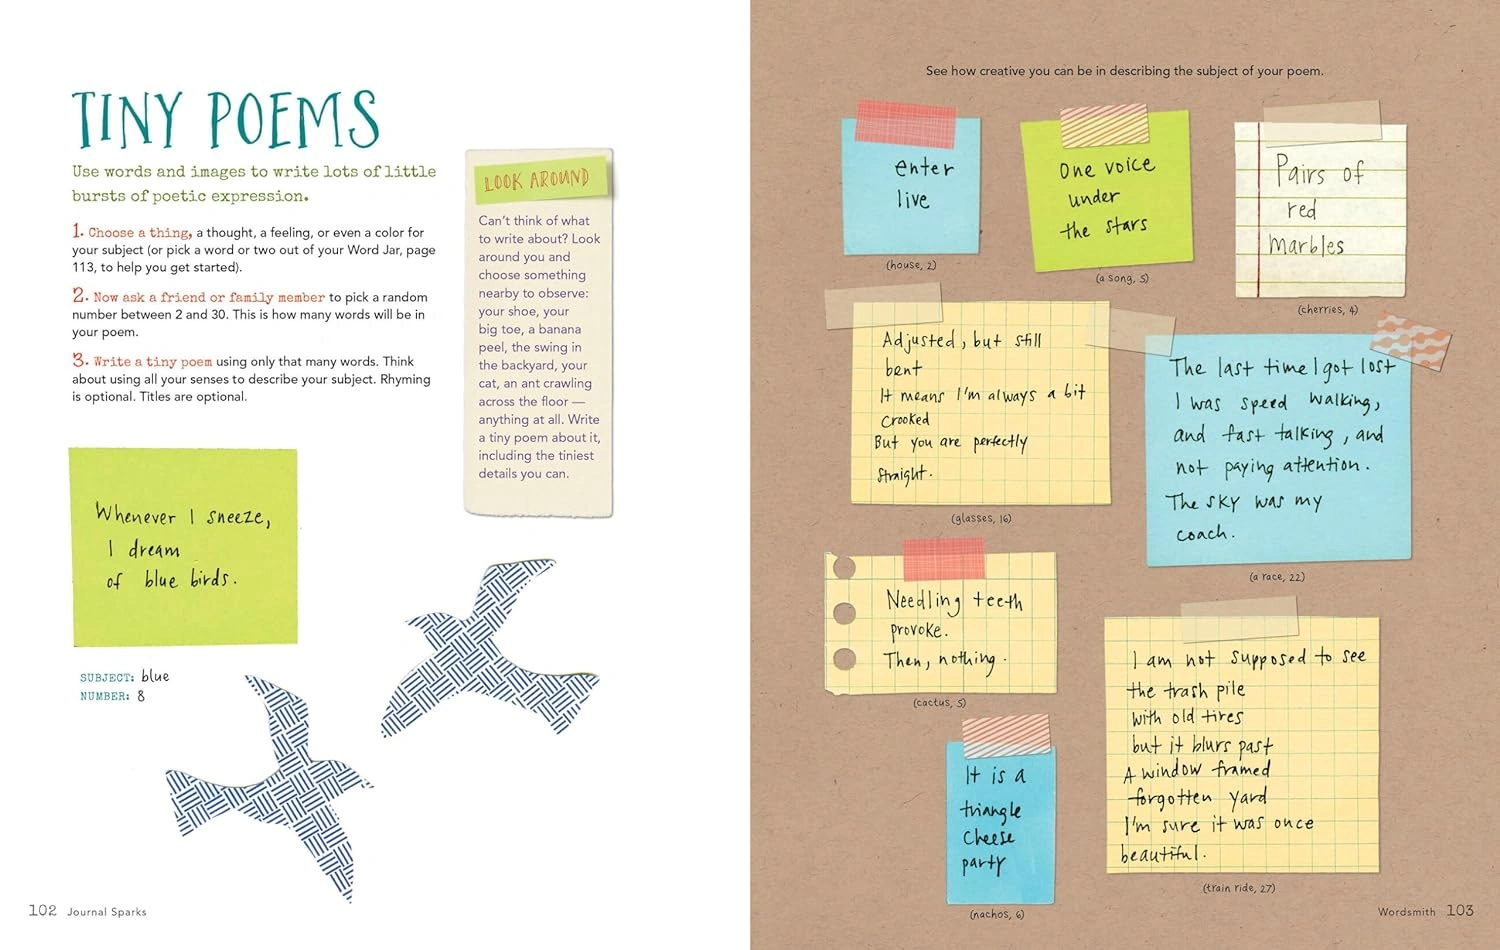 TINY POEMS
Use words and images to write lots of little
bursts of poetic expression.
1. Choose a thing, a thought, a feeling, or even a color for
your subject (or pick a word or two out of your Word Jar, page
113, to help you get started).
2. Now ask a friend or family member to pick a random
number between 2 and 30. This is how many words will be in
your poem.
3. Write a tiny poem using only that many words. Think
about using all your senses to describe your subject. Rhyming
is optional. Titles are optional.
LOOK AROUND
Can't think of what
to write about? Look
around you and
choose something
nearby to observe:
your shoe, your
big toe, a banana
peel, the swing in
the backyard, your
cat, an ant crawling
across the floor —
anything at all. Write
a tiny poem about it,
including the tiniest
details you can.
Whenever I sneeze,
I dream
of blue birds.
SUBJECT: blue
NUMBER: 8
102 Journal Sparks
See how creative you can be in describing the subject of your poem.
enter
live
(house, 2)
One voice
under
the stars
(a song, 5)
Pairs of
red
marbles
(cherries, 4)
Adjusted, but still
bent
It means I'm always a bit
crooked
But you are perfectly
straight.
(glasses, 16)
The last time I got lost
I was speed walking,
and fast talking, and
not paying attention.
The sky was my
coach.
(a race, 22)
Needling teeth
provoke.
Then, nothing.
(cactus, 5)
It is a
triangle
cheese
party
(nachos, 6)
I am not supposed to see
the trash pile
with old tires
but it blurs past
A window framed
forgotten yard
I'm sure it was once
beautiful.
(train ride, 27)
Wordsmith 103